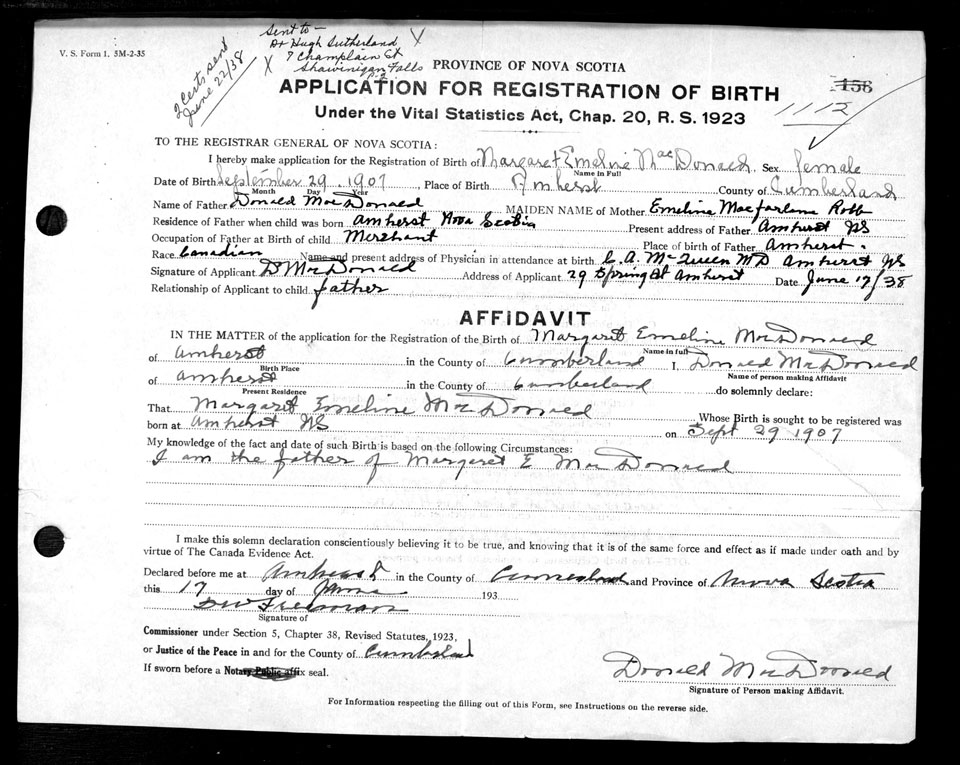 V. S. Form 1. 5M-2-35
2 Certs. sent
June 22/38
Sent to -
Dr Hugh Sutherland
7 Champlain St
Shawinigan Falls
P.Q.
X
X
PROVINCE OF NOVA SCOTIA
APPLICATION FOR REGISTRATION OF BIRTH
156
1112
Under the Vital Statistics Act, Chap. 20, R. S. 1923
TO THE REGISTRAR GENERAL OF NOVA SCOTIA:
I hereby make application for the Registration of Birth of Margaret Emeline MacDonald, Sex female
Name in Full
Date of Birth September 29, 1907, Place of Birth Amherst County of Cumberland
Month Day Year
Name of Father Donald MacDonald MAIDEN NAME of Mother Emeline Macfarlane Robb
Residence of Father when child was born Amherst Nova Scotia Present address of Father Amherst NS
Occupation of Father at Birth of child Merchant Place of birth of Father Amherst.
Race Canadian Name and present address of Physician in attendance at birth C. A. McQueen MD Amherst NS
Signature of Applicant D MacDonald Address of Applicant 29 Spring St Amherst Date June 17/38
Relationship of Applicant to child father
AFFIDAVIT
IN THE MATTER of the application for the Registration of the Birth of Margaret Emeline MacDonald
Name in full
of Amherst in the County of Cumberland I, Donald MacDonald
Birth Place Name of person making Affidavit
of Amherst in the County of Cumberland do solemnly declare:
Present Residence
That Margaret Emeline MacDonald Whose Birth is sought to be registered was
born at Amherst NS on Sept 29 1907
My knowledge of the fact and date of such Birth is based on the following Circumstances:
I am the father of Margaret E MacDonald
I make this solemn declaration conscientiously believing it to be true, and knowing that it is of the same force and effect as if made under oath and by
virtue of The Canada Evidence Act.
Declared before me at Amherst in the County of Cumberland and Province of Nova Scotia
this 17 day of June 193
Signature of
Commissioner under Section 5, Chapter 38, Revised Statutes, 1923,
or Justice of the Peace in and for the County of Cumberland
If sworn before a Notary Public affix seal.
Donald MacDonald
Signature of Person making Affidavit.
For Information respecting the filling out of this Form, see Instructions on the reverse side.